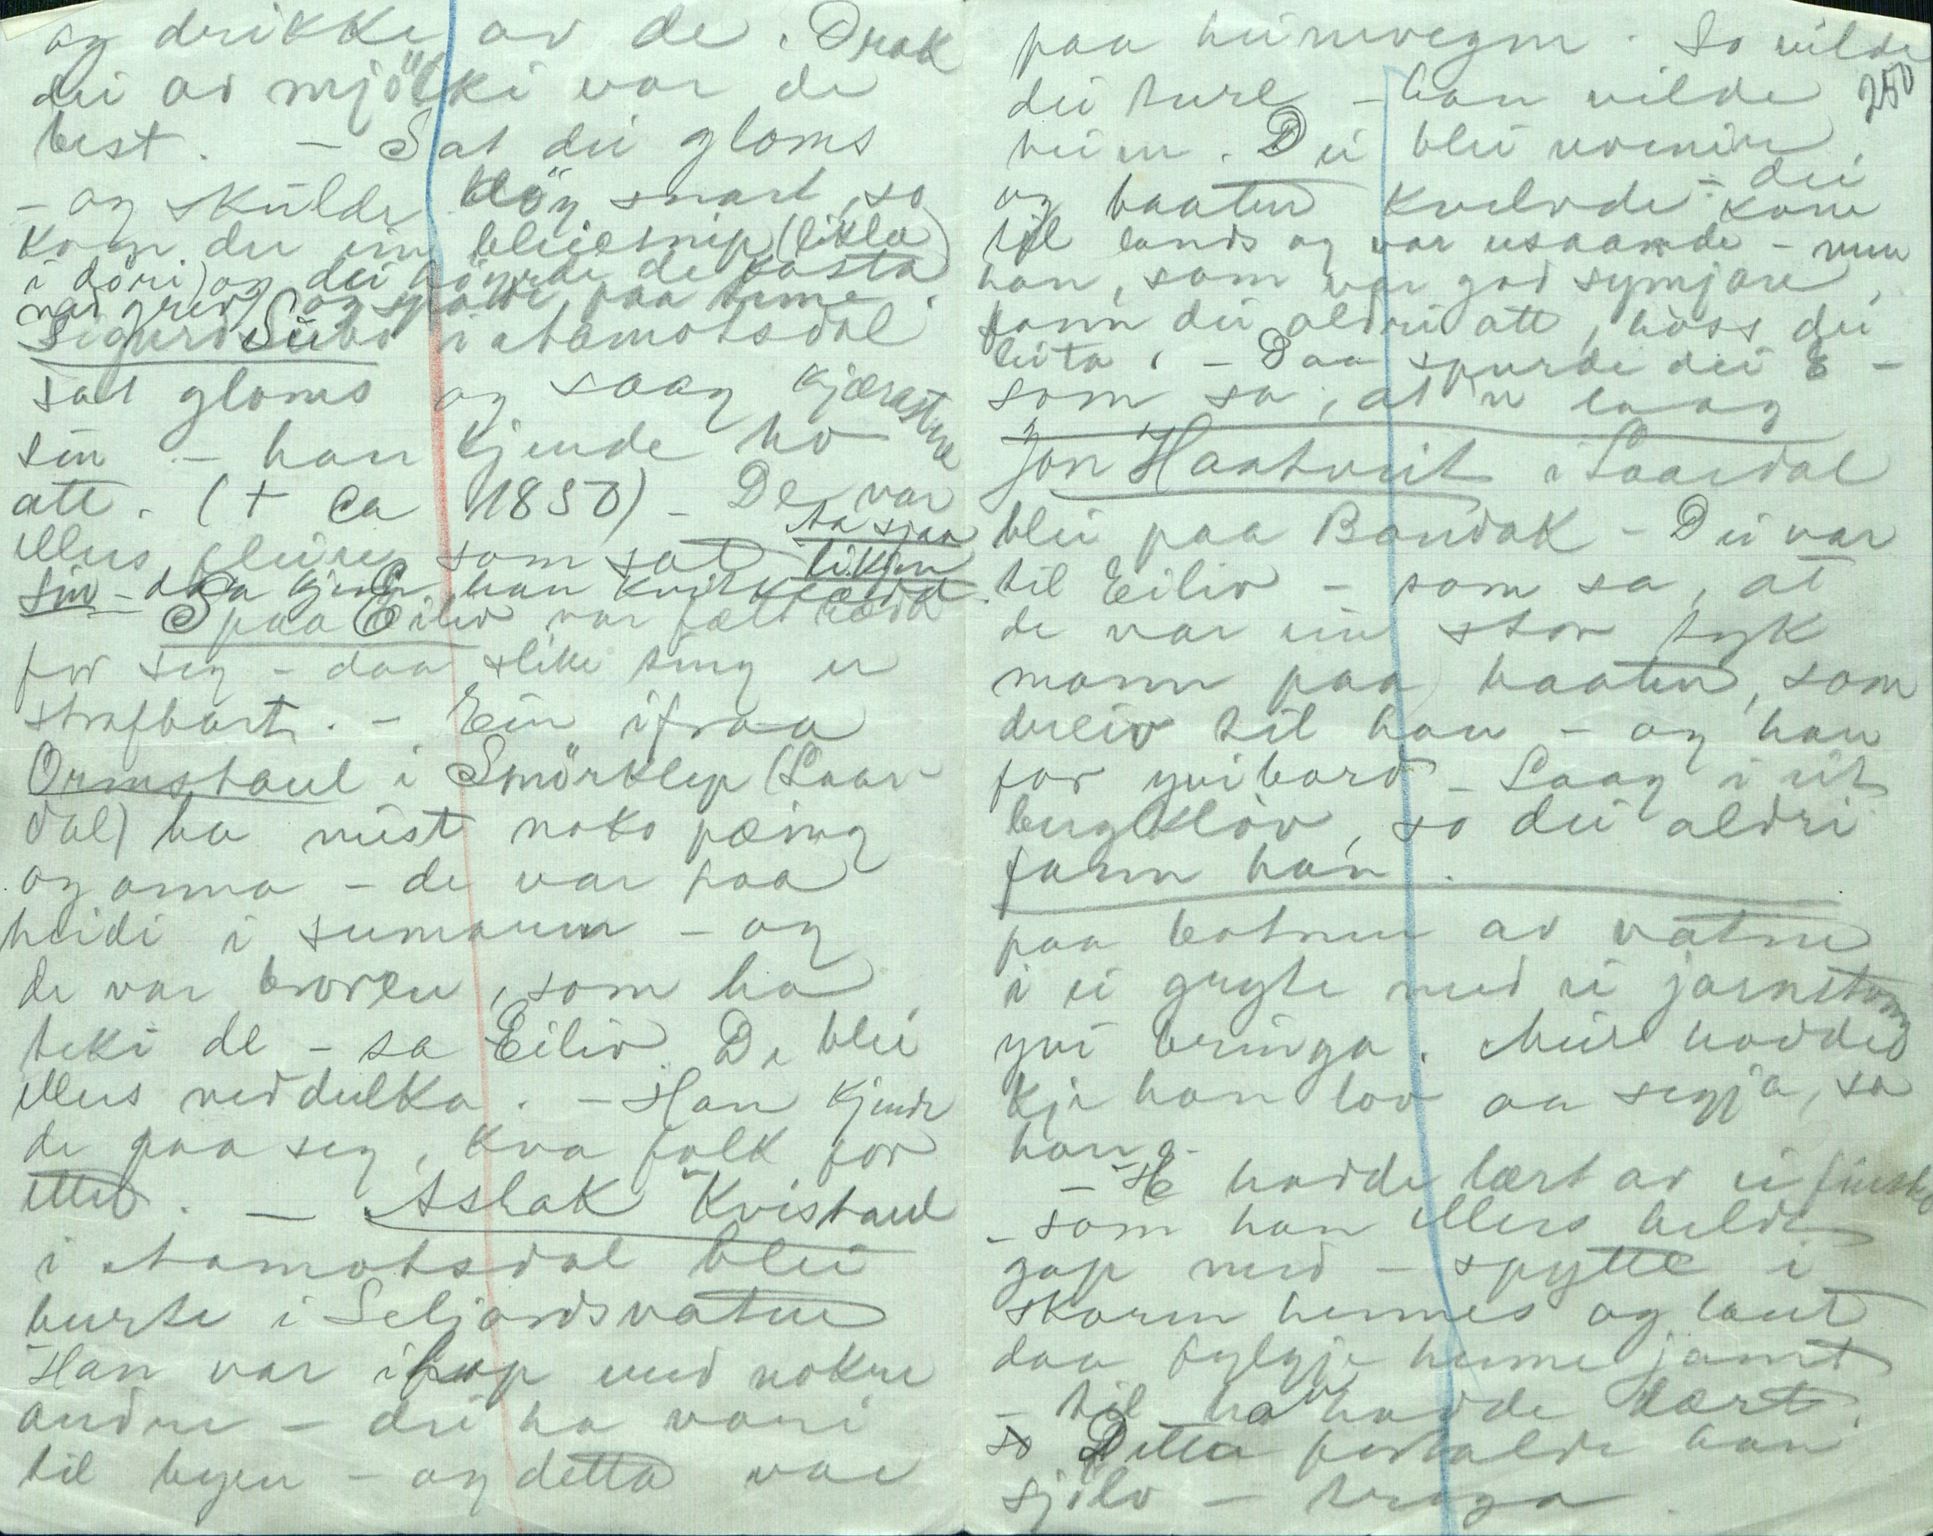 og drikke av de. Drak
dei av mjölki var de
best. – Sat dei gloms
– og skulde döy snart, so
kom der ein bleiesnip (likla)
i döri) og dei höyrde de kasta
ned grev og spade paa tune.
Sigurd Sübö i Aamotsdal
sat gloms og saag kjærastune
sin – han kjende ho
att. (+ ca 1850) – De var
ellers fleire som sat aa sjaa
likjen
sin – daa kjem han kvitklædd.
Spaa Eiliv var fælt rædd
for seg – daa slike ting er
strafbart. – Ein ifraa
Ormstaul i Smörklep (Laar-
dal) ha mist noko pæing
og anna – de var paa
heidi i sumarun – og
de var broren, som ha
teki de – sa Eiliv. De blei
ellers neddulka. – Han kjende
de paa seg, kva folk for
etter. – Aslak Kvistaul
i Aamotsdal blei
burte i Seljordsvatne
Han var ihop med nokre
andre – dei ha vori
til byen – og detta var
paa heimvegen. So vilde
250
dei turl – han vilde
heim. Dei blei usemin,
og baaten kvelvde – dei kom
til lands og var usaamde – men
han, som var god symjare,
fann dei aldri att, höss dei
leita. – Daa spurde dei E –
som sa, at 'n laag
Jon Haatveit i Laardal
blei paa Bandak – Dei var
til Eiliv – som sa, at
de var ein stor tyk
mann paa baaten, som
dreiv til han – og han
for yvibord – Laag i eit
bergklöv, so dei aldri
fann han.
paa botnen av vatne
i ei gryte med ei jarnstong
yvi bringa. Meir hadde
kje han lov aa segja, sa
han.
– E hadde lært av ei finsk
– som han ellers heldt
gap med – spytte i
skoren hennes og laut
daa fylgje henne jamt
– til han hadde lært.
so Detta fortalde han
sjölv –